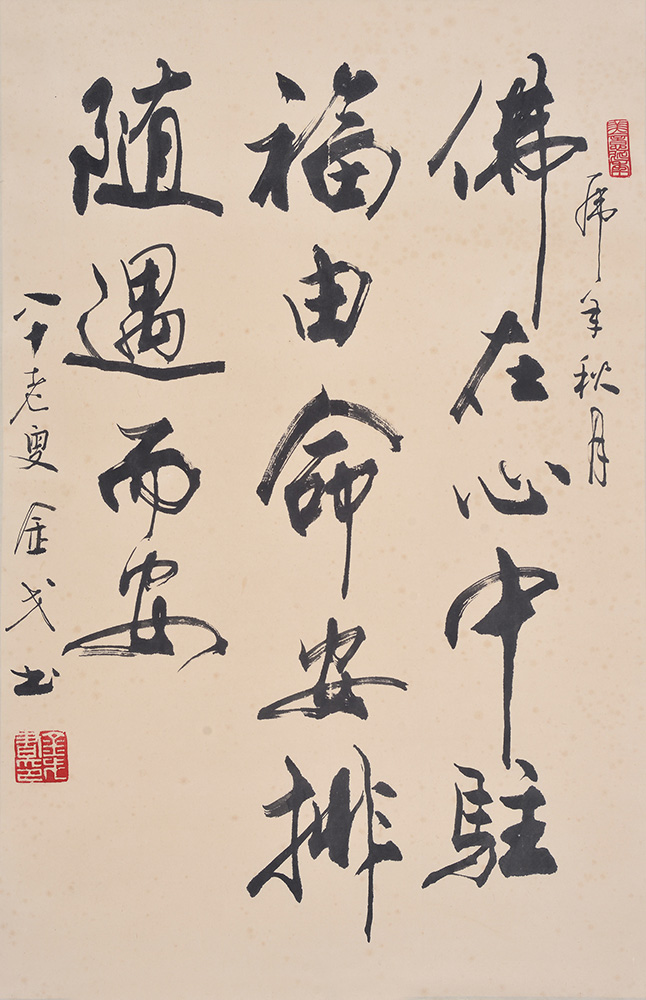 虎年秋月
佛在心中駐
福由命安排
随遇而安
八十老叟金戈书